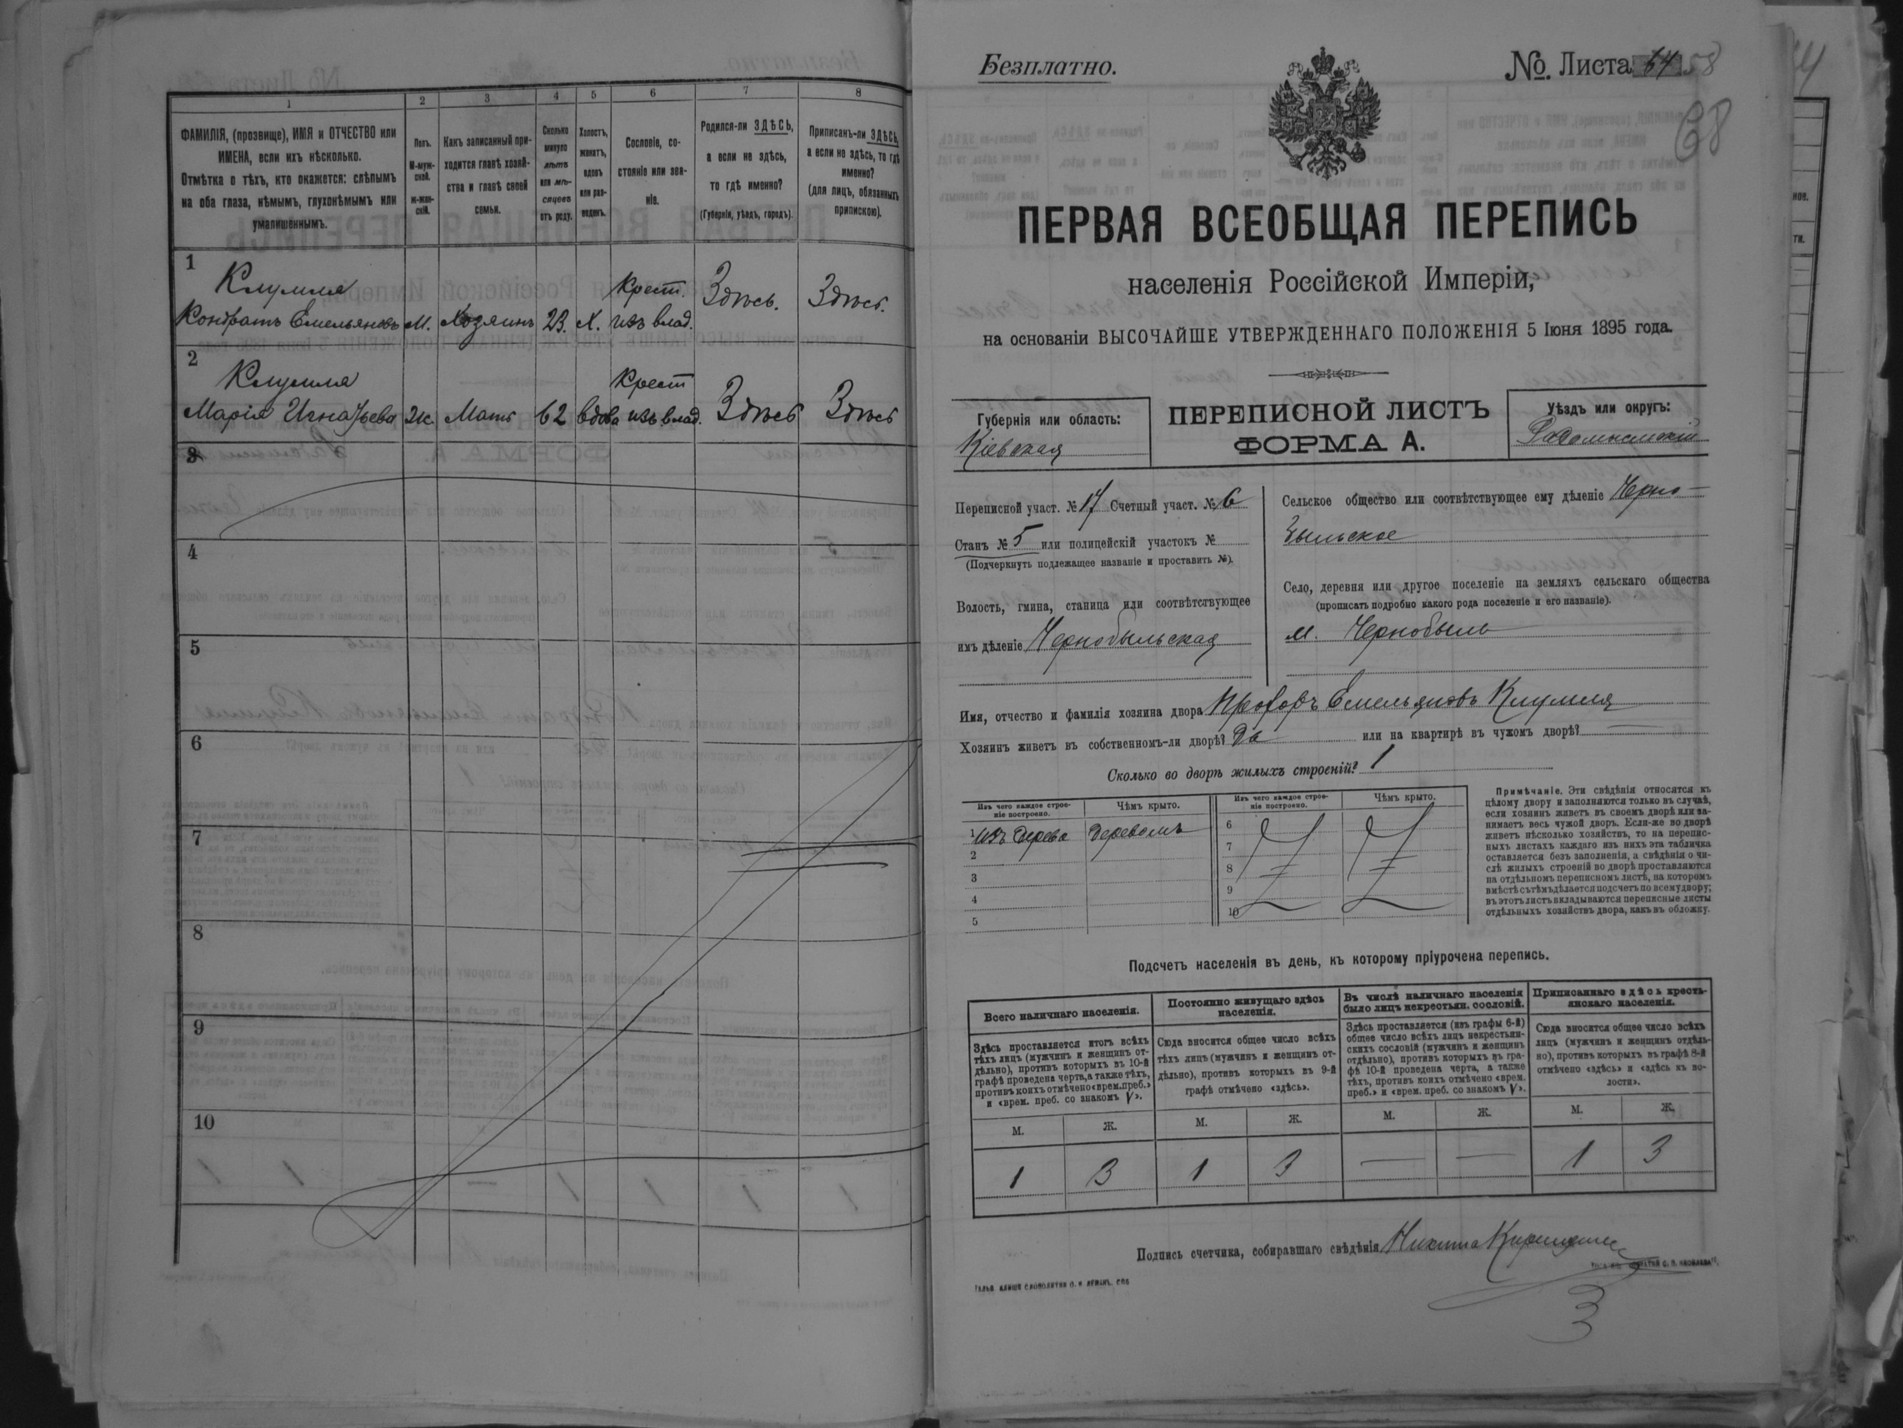 1 2 3 4 5 6 7 8
ФАМИЛІЯ, (прозвище), ИМЯ и ОТЧЕСТВО или
ИМЕНА, если ихъ нѣсколько.
Отмѣтка о тѣхъ, кто окажется: слѣпымъ
на оба глаза, нѣмымъ, глухонѣмымъ или
умалишеннымъ.
Полъ.
М-муж-
ской.
ж-жен-
скій.
Какъ записанный при-
ходится главѣ хозяй-
ства и главѣ своей
семьи.
Сколько
минуло
лѣтъ
или мѣ-
сяцевъ
отъ роду.
Холостъ,
женатъ,
вдовъ
или раз-
веденъ.
Сословіе, со-
стояніе или зва-
ніе.
Родился-ли ЗДѢСЬ,
а если не здѣсь,
то гдѣ именно?
(Губернія, уѣздъ, городъ).
Приписанъ-ли ЗДѢСЬ,
а если не здѣсь, то гдѣ
именно?
(для лицъ, обязанныхъ
припискою).
1
Клумля Крест. Здѣсь. Здѣсь.
Кондратъ Емельяновъ М. Хозяинъ 23. Х. изъ влад.
2
Клумля Крест
Марія Игнатьева Ж. Мать 62 вдова изъ влад. Здѣсь Здѣсь
3
4
5
6
7
8
9
10
Безплатно.
№ Листа 64 58
68
ПЕРВАЯ ВСЕОБЩАЯ ПЕРЕПИСЬ
населенія Россійской Имперіи,
на основаніи ВЫСОЧАЙШЕ УТВЕРЖДЕННАГО ПОЛОЖЕНІЯ 5 Іюня 1895 года.
Губернія или область:
Кіевская
ПЕРЕПИСНОЙ ЛИСТЪ
ФОРМА А.
Уѣздъ или округъ:
Радомысльскій
Переписной участ. № 17 Счетный участ. № 6
Станъ № 5 или полицейскій участокъ №
(Подчеркнуть подлежащее названіе и проставить №).
Волость, гмина, станица или соотвѣтствующее
имъ дѣленіе Чернобыльская
Сельское общество или соотвѣтствующее ему дѣленіе Черно-
быльское
Село, деревня или другое поселеніе на земляхъ сельскаго общества
(прописать подробно какого рода поселеніе и его названіе).
м. Чернобыль
Имя, отчество и фамилія хозяина двора Прохоръ Емельяновъ Клумля
Хозяинъ живетъ въ собственномъ-ли дворѣ? Да или на квартирѣ въ чужомъ дворѣ?
Сколько во дворѣ жилыхъ строеній? 1
Изъ чего каждое строе-
ніе построено.
Чѣмъ крыто.
Изъ чего каждое строе-
ніе построено.
Чѣмъ крыто.
1 Изъ дерева деревомъ
2
3
4
5
6
7
8
9
10
Примѣчаніе. Эти свѣдѣнія относятся къ
цѣлому двору и заполняются только въ случаѣ,
если хозяинъ живетъ въ своемъ дворѣ или за-
нимаетъ весь чужой дворъ. Если-же во дворѣ
живетъ нѣсколько хозяйствъ, то на перепис-
ныхъ листахъ каждаго изъ нихъ эта табличка
оставляется безъ заполненія, а свѣдѣнія о чи-
слѣ жилыхъ строеній во дворѣ проставляются
на отдѣльномъ переписномъ листѣ, на которомъ
вмѣстѣ съ тѣмъ дѣлается подсчетъ по всему двору;
въ этотъ листъ вкладываются переписные листы
отдѣльныхъ хозяйствъ двора, какъ въ обложку.
Подсчетъ населенія въ день, къ которому пріурочена перепись.
Всего наличнаго населенія.
Здѣсь проставляется итогъ всѣхъ
тѣхъ лицъ (мужчинъ и женщинъ от-
дѣльно), противъ которыхъ въ 10-й
графѣ проведена черта, а также тѣхъ,
противъ коихъ отмѣчено «врем. преб.»
и «врем. преб. со знакомъ V».
Постоянно живущаго здѣсь
населенія.
Сюда вносится общее число всѣхъ
тѣхъ лицъ (мужчинъ и женщинъ от-
дѣльно), противъ которыхъ въ 9-й
графѣ отмѣчено «здѣсь».
Въ числѣ наличнаго населенія
было лицъ некрестьян. сословій.
Здѣсь проставляется (изъ графы 6-й)
общее число всѣхъ лицъ некрестьян-
скихъ сословій (мужчинъ и женщинъ
отдѣльно), противъ которыхъ въ гра-
фѣ 10-й проведена черта, а также
тѣхъ, противъ коихъ отмѣчено «врем.
преб.» и «врем. преб. со знакомъ V».
Приписаннаго здѣсь кресть-
янскаго населенія.
Сюда вносится общее число всѣхъ
лицъ (мужчинъ и женщинъ отдѣль-
но), противъ которыхъ въ графѣ 8-й
отмѣчено «здѣсь» и «здѣсь въ во-
лости».
М. Ж. М. Ж. М. Ж. М. Ж.
1 3 1 3 — — 1 3
Подпись счетчика, собиравшаго свѣдѣнія Никита
3